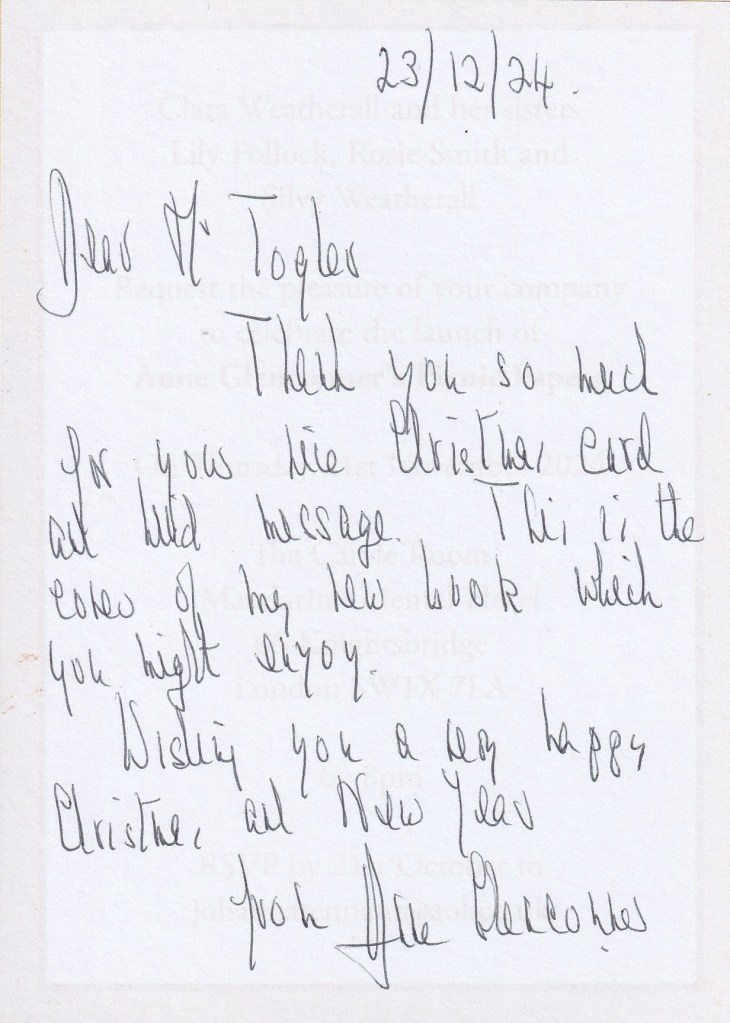 23/12/24.
Dear Mr Togler
Thank you so much
for your nice Christmas card
and kind message. This is the
cover of my new book which
you might enjoy.
Wishing you a very happy
Christmas and New Year
from Anne Glenconner
Clara Weatherall and her sisters
Lily Pollock, Rosie Smith and
Silvy Weatherall
Request the pleasure of your company
to celebrate the launch of
Anne Glenconner's Picnic Papers
On Thursday 21st November 2024
The Carlyle Room
Mandarin Oriental Hotel
Knightsbridge
London SW1X 7LA
6-8pm
RSVP by 21st October to